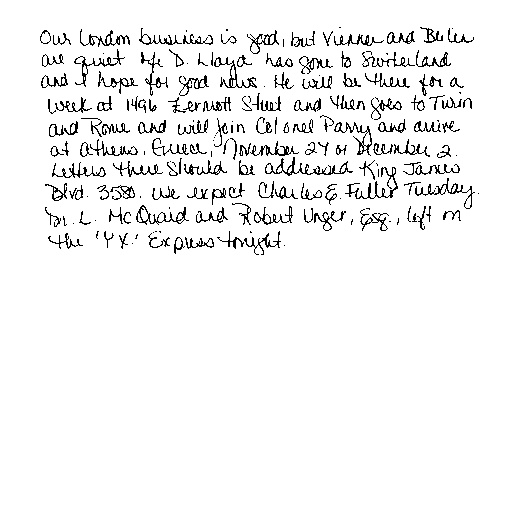 Our London business is good, but Vienna and Berlin
are quiet Mr. D. Lloyd has gone to Switerland
and I hope for good news. He will be there for a
week at 1496 Zermott Street and then goes to Turin
and Rome and will join Colonel Parry and arrive
at Athens, Greece, November 27 or December 2.
Letters there should be addressed King James
Blvd. 3580. We expect Charles E. Fuller Tuesday.
Dr. L. McQuaid and Robert Unger, Esq., left on
the 'Y.X.' Express tonight.